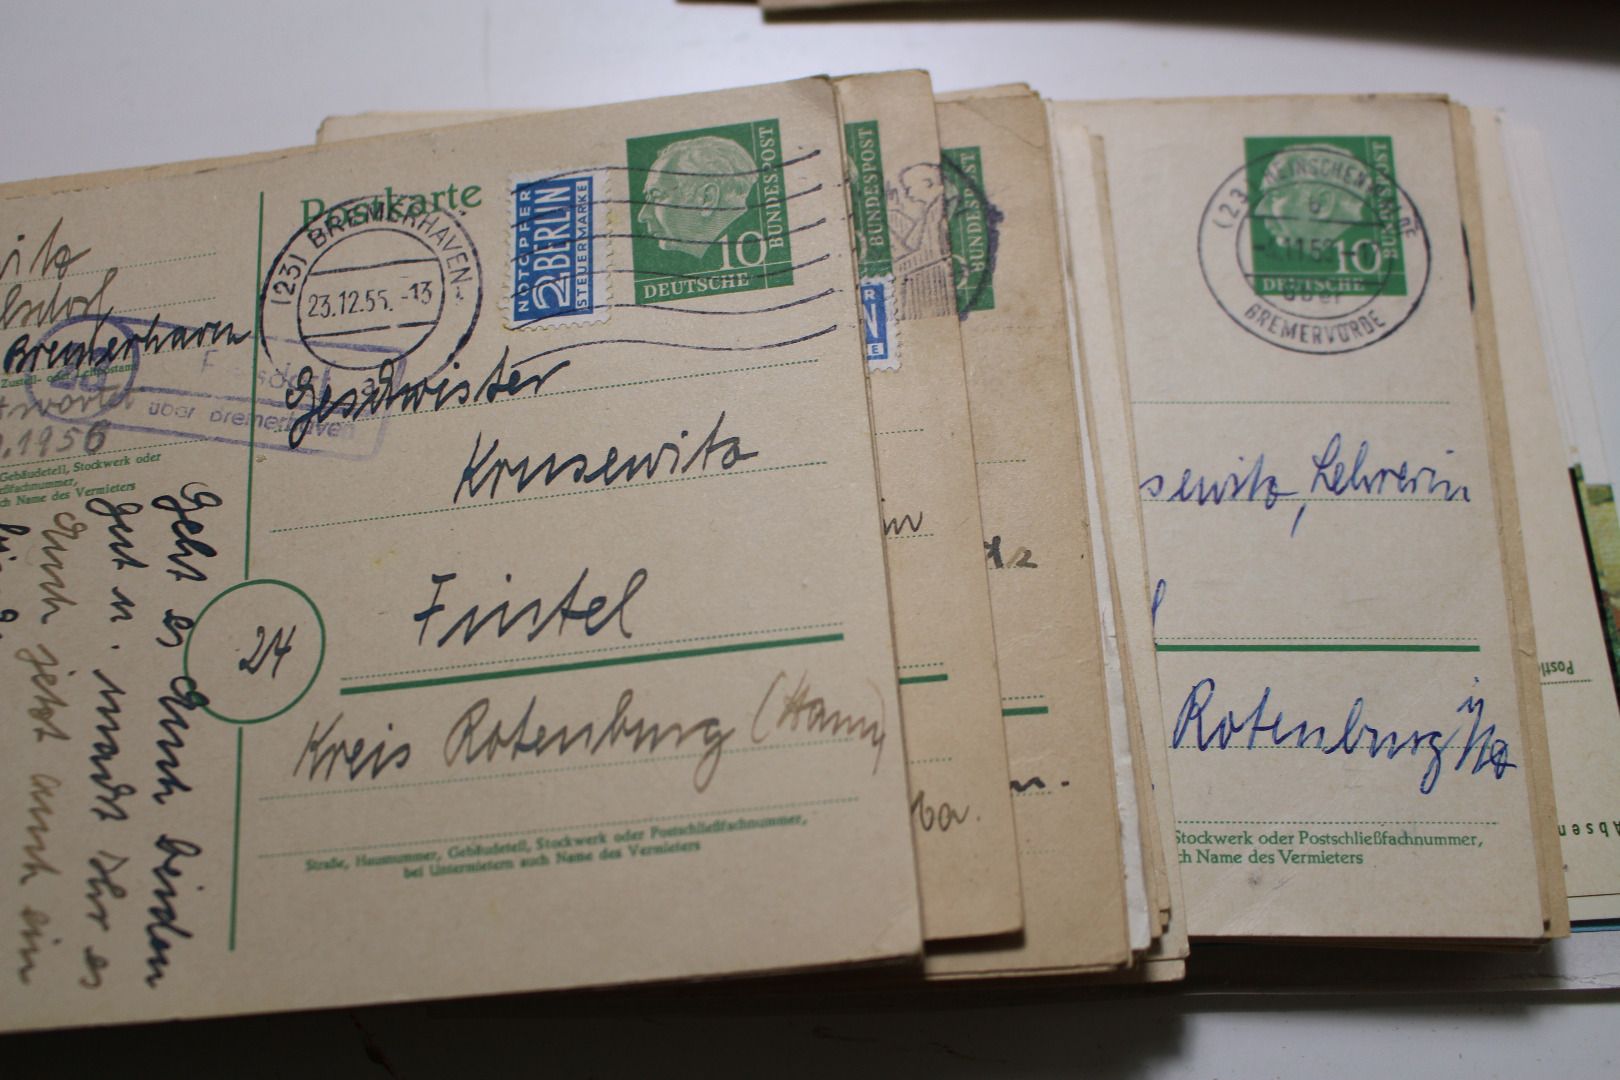 Postkarte
(23) BREMERHAVEN
23.12.55.-13
NOTOPFER
2 BERLIN
STEUERMARKE
10
DEUTSCHE
BUNDESPOST
Bremerhaven
Zustell- oder Leitpostamt
über Bremerhaven
.1956
Gebäudeteil, Stockwerk oder
ch Name des Vermieters
Geschwister
Krusewitz
Fintel
24
Kreis Rotenburg (Hann)
Straße, Hausnummer, Gebäudeteil, Stockwerk oder Postschließfachnummer,
bei Untermietern auch Name des Vermieters
Geht es Euch beiden
gut u. macht Ihr es
Euch jetzt auch ein
BUNDESPOST
N
E
BUNDESPOST
10
DEUTSCHE
BUNDESPOST
über
BREMERVÖRDE
sewitz, Lehrerin
Rotenburg
Stockwerk oder Postschließfachnummer,
ch Name des Vermieters
Postl
Absen